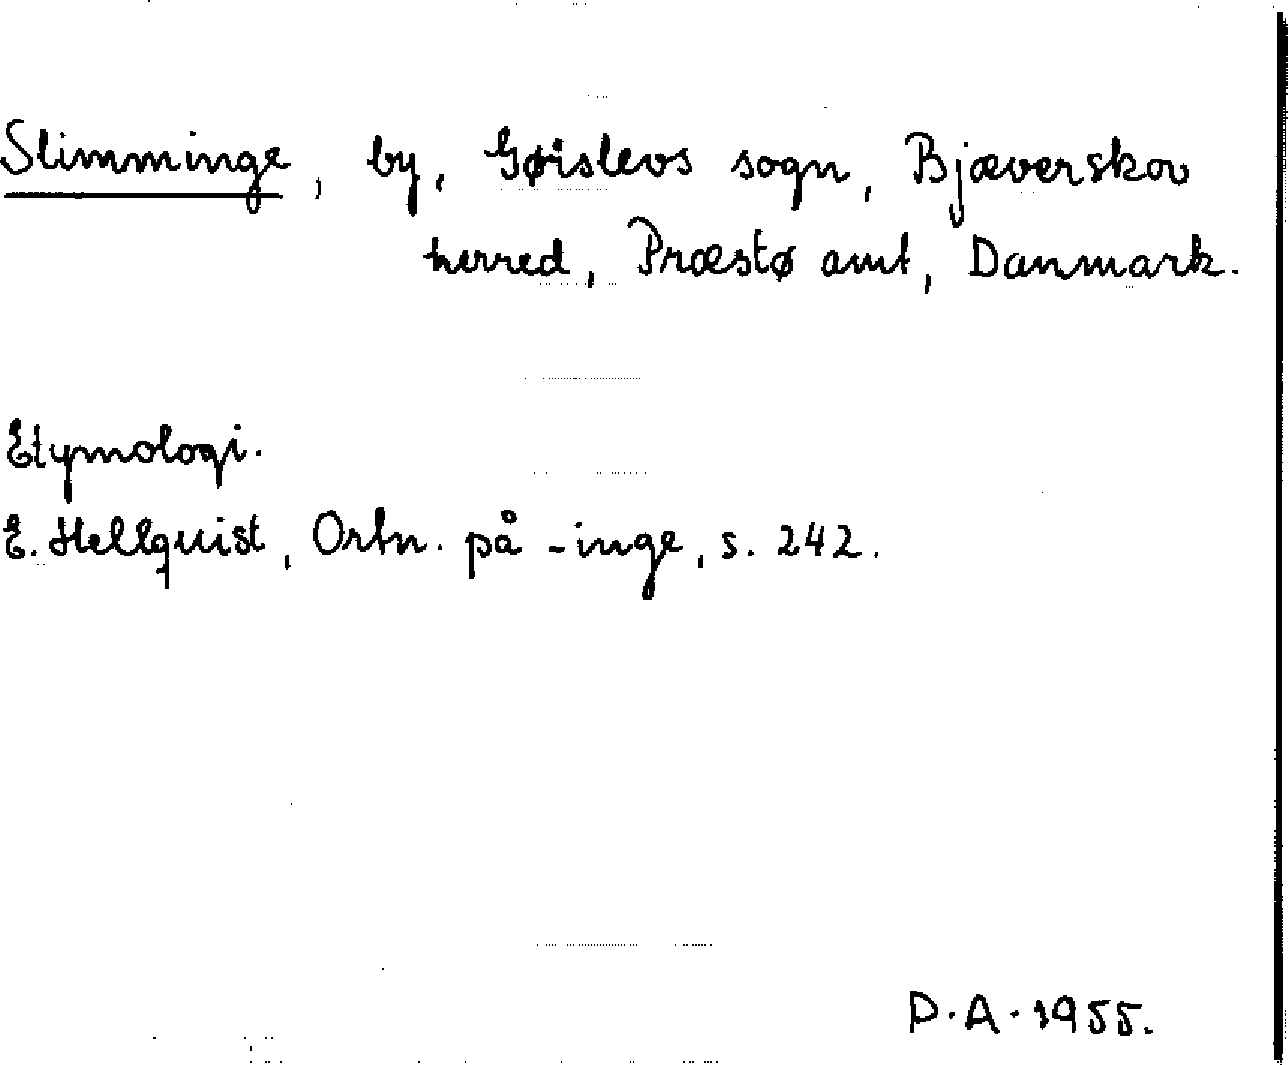 Slimminge, by, Gørslevs sogn, Bjæverskov
herred, Præstø amt, Danmark.
Etymologi.
E. Hellquist, Ortn. på -inge, s. 242.
D.A. 1955.